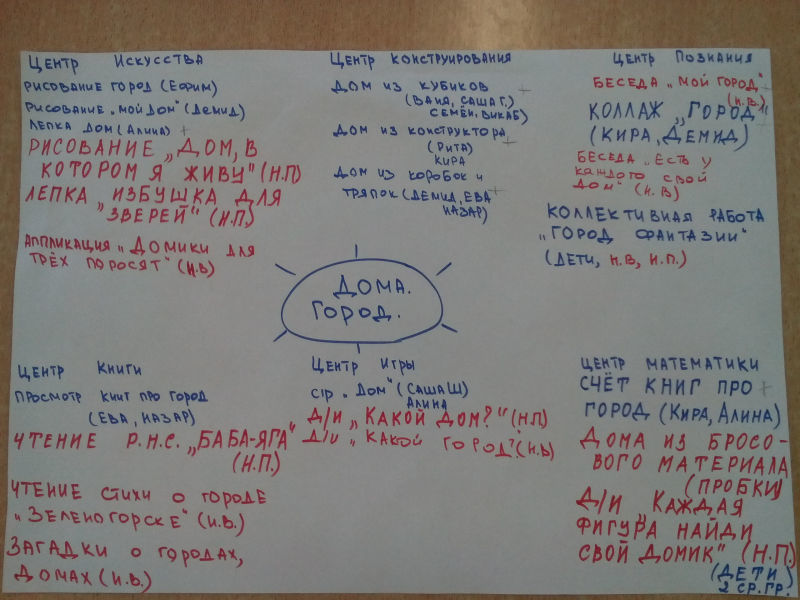 Центр Искусства
Рисование город (Ефим)
Рисование „Мой дом" (Демид)
Лепка дом (Алина) +
Рисование „Дом, в
котором я живу" (Н.П)
Лепка „Избушка для
зверей" (Н.П.)
Аппликация „Домики для
трёх поросят" (И.В)
Центр конструирования
Дом из кубиков +
(Ваня, Саша Г.)
Семён, Викаб)
Дом из конструктора +
(Рита)
Кира
Дом из коробок и
тряпок (Демид, Ева +
Назар)
Центр Познания
Беседа „Мой город" +
(И.В.)
Коллаж „Город" +
(Кира, Демид)
Беседа „Есть у
каждого свой
дом" (И.В)
Коллективная работа
„Город фантазии"
(Дети, И.В, Н.П.)
Дома.
Город.
Центр Книги
Просмотр книг про город
(Ева, Назар)
Чтение р.н.с. „Баба-Яга"
(Н.П.)
Чтение стихи о городе
„Зеленогорске" (И.В.)
Загадки о городах,
домах (И.В.)
Центр Игры
с/р „Дом" (Саша Ш)
Алина
Д/и „Какой дом?" (Н.П)
Д/и „Какой город?" (И.В)
Центр математики
Счёт книг про +
город (Кира, Алина)
Дома из бросо-
вого материала
(пробки)
Д/и „Каждая
фигура найди
свой домик" (Н.П.)
(Дети)
2 ср. гр.